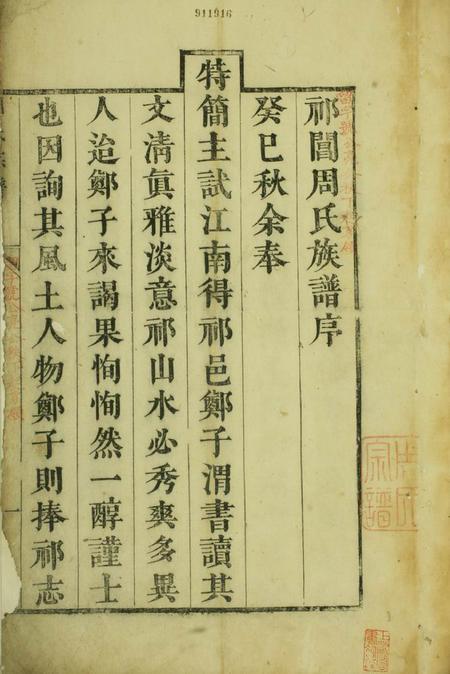 911916
祁閶周氏族譜序
癸巳秋余奉
特簡主試江南得祁邑鄭子渭書讀其
文清真雅淡意祁山水必秀爽多異
人迨鄭子來謁果恂恂然一醇謹士
也因詢其風土人物鄭子則捧祁志
一
周氏
宗譜